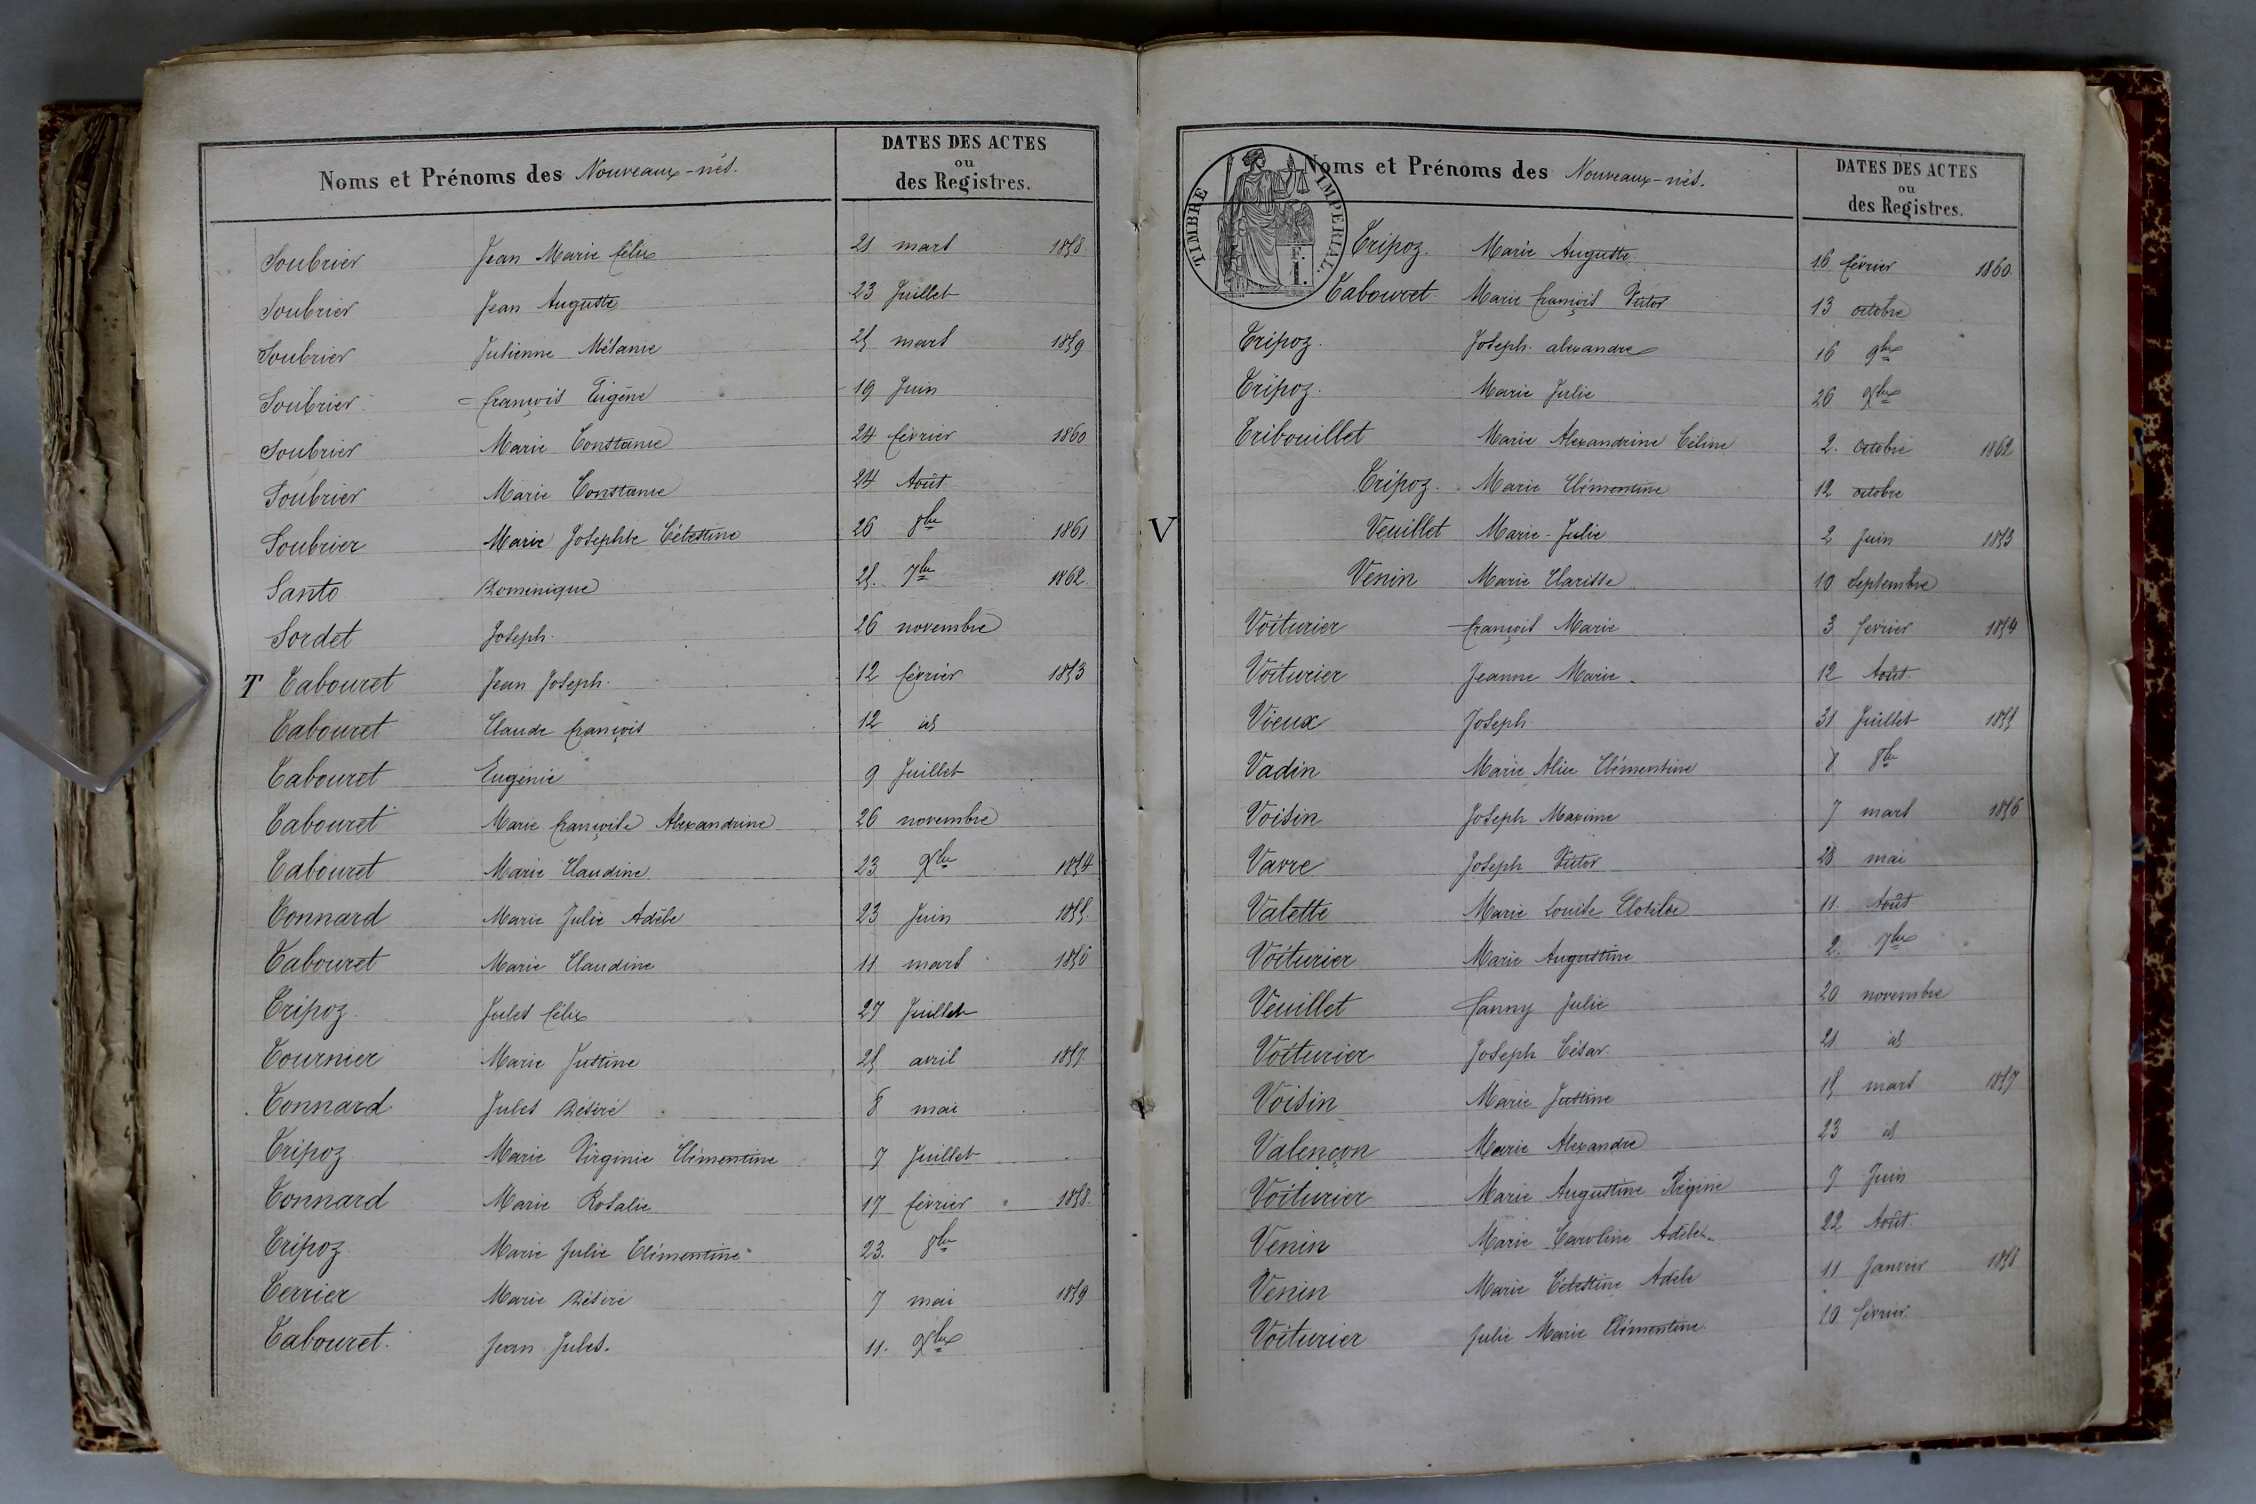 Noms et Prénoms des Nouveaux-nés.
DATES DES ACTES
ou
des Registres.
Soubrier Jean Marie félix 21 mars 1858
Soubrier Jean Auguste 23 Juillet
Soubrier Julienne Mélanie 25 mars 1859
Soubrier françois Eugène 19 Juin
Soubrier Marie Constance 24 février 1860
Soubrier Marie Constance 24 Août
Soubrier Marie Josephte Célestine 26 8bre 1861
Santo Dominique 25. 7bre 1862.
Sordet Joseph. 26 novembre
T Tabouret Jean Joseph. 12 février 1853
Tabouret Claude françois 12 id
Tabouret Eugénie 9 Juillet
Tabouret Marie françoise Alexandrine 26 novembre
Tabouret Marie Claudine 23 Xbre 1854
Tonnard Marie Julie Adèle 23 Juin 1855.
Tabouret Marie Claudine 11 mars 1856
Tripoz Jules félix 27 Juillet
Tournier Marie Justine 25 avril 1857
Tonnard Jules Désiré 8 mai
Tripoz Marie Virginie Clémentine 7 Juillet
Tonnard Marie Rosalie 17 février 1858.
Tripoz Marie Julie Clémentine 23. 8bre
Terrier Marie Désiré 7 mai 1859
Tabouret. Jean Jules. 11. Xbre
TIMBRE IMPERIAL.
F.
1.
Noms et Prénoms des Nouveaux-nés.
DATES DES ACTES
ou
des Registres.
Tripoz. Marie Auguste 16 février 1860
Tabouret Marie françois Victor 13 octobre
Tripoz. Joseph. alexandre 16 9bre
Tripoz. Marie Julie 26 Xbre
Tribouillet Marie Alexandrine Céline 2. octobre 1862
Tripoz. Marie Clémentine 12 octobre
V Veuillet Marie-Julie 2 Juin 1853
Venin Marie Clarisse 10 Septembre
Voiturier françois Marie 3 fevrier 1854
Voiturier Jeanne Marie 12 Août.
Vieux Joseph 31 Juillet 1855
Vadin Marie Alice Clémentine 8 8bre
Voisin Joseph Maxime 7 mars 1856
Varre Joseph Victor 28 mai
Valette Marie Louise Clotilde 11 Août
Voiturier Marie Augustine 2. 7bre
Veuillet fanny Julie 20 novembre
Voiturier Joseph César 21 id
Voisin Marie Justine 15 mars 1857
Valençon Marie Alexandre 23 id
Voiturier Marie Augustine Régine 7 Juin
Venin Marie Caroline Adèle. 22 Août.
Venin Marie Célestine Adèle 11 Janvier 1858
Voiturier Julie Marie Clémentine 10 février